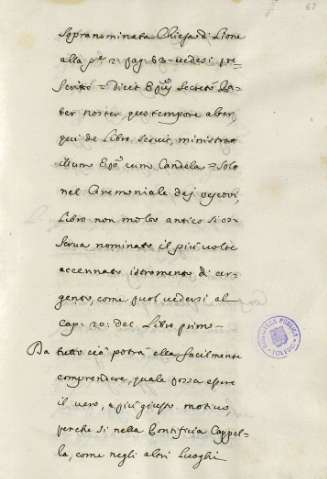 sopranominata Chiesa di Lione
alla p.e 2. pag. 63. vedesi pre
scritto = dicet Epũs secretò Pa-
ter noster, quo tempore alter,
qui de Libro servit, ministrat
illum Epõ cum Candela = Solo
nel Ceremoniale dej Vescovi,
Libro non molto antico si os-
serva nominato il più volte
accennato istromento di ar-
gento, come puol vedersi al
Cap. 20: del Libro primo.
Da tutto ciò potrà ella facilmente
comprendere, quale possa essere
il vero, e più giusto motivo,
perche si nella Pontificia Cappel-
la, come negli altri Luoghi